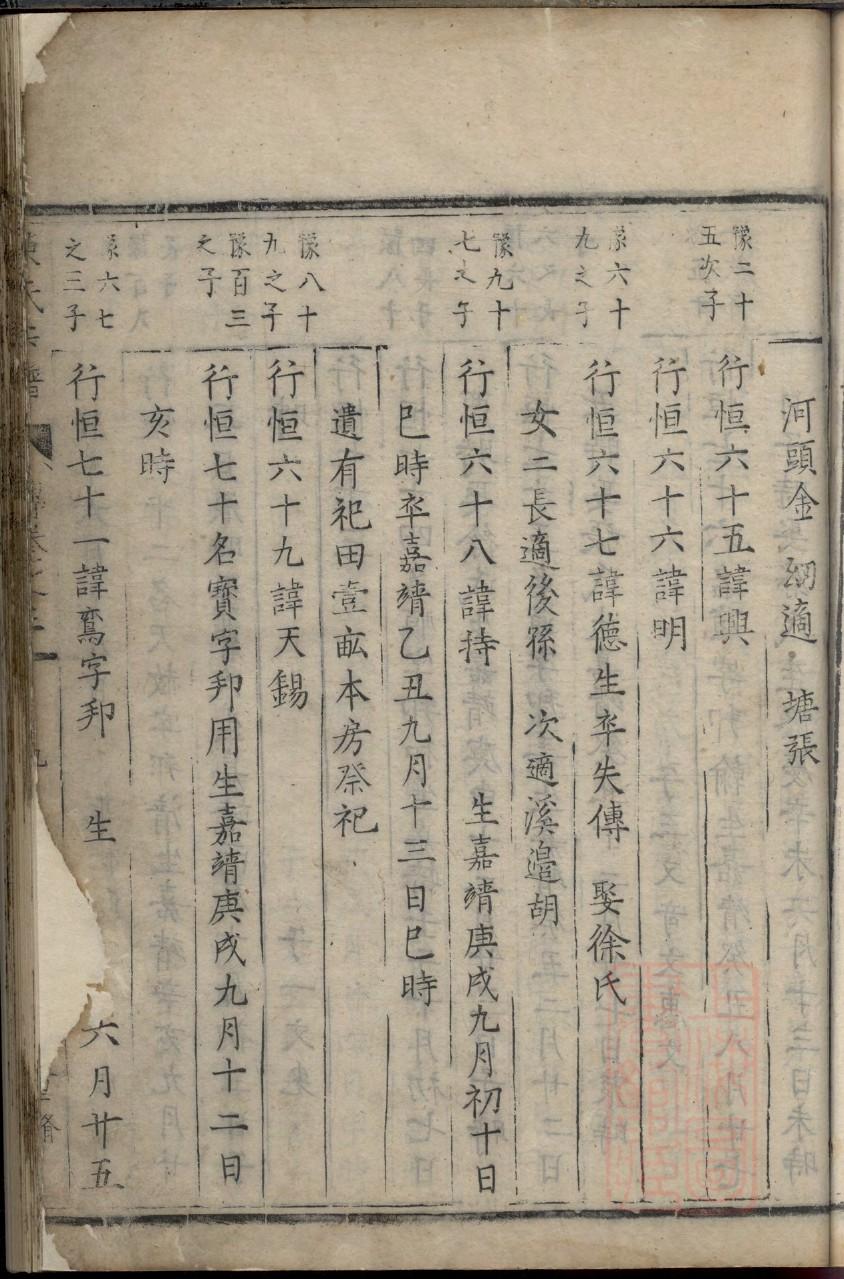 河頭金 幼適 塘張
豫二十
五次子
行恒六十五諱興
行恒六十六諱明
豫六十
九之子
行恒六十七諱德生卒失傳 娶徐氏
女二長適後孫 次適溪邉胡
豫九十
七之子
行恒六十八諱持 生嘉靖庚戌九月初十日
巳時卒嘉靖乙丑九月十三日巳時
遺有祀田壹畝本房祭祀
豫八十
九之子
行恒六十九諱天錫
豫百三
之子
行恒七十名寳字邦用生嘉靖庚戌九月十二日
亥時
豫六七
之三子
行恒七十一諱鸞字邦 生 六月廿五